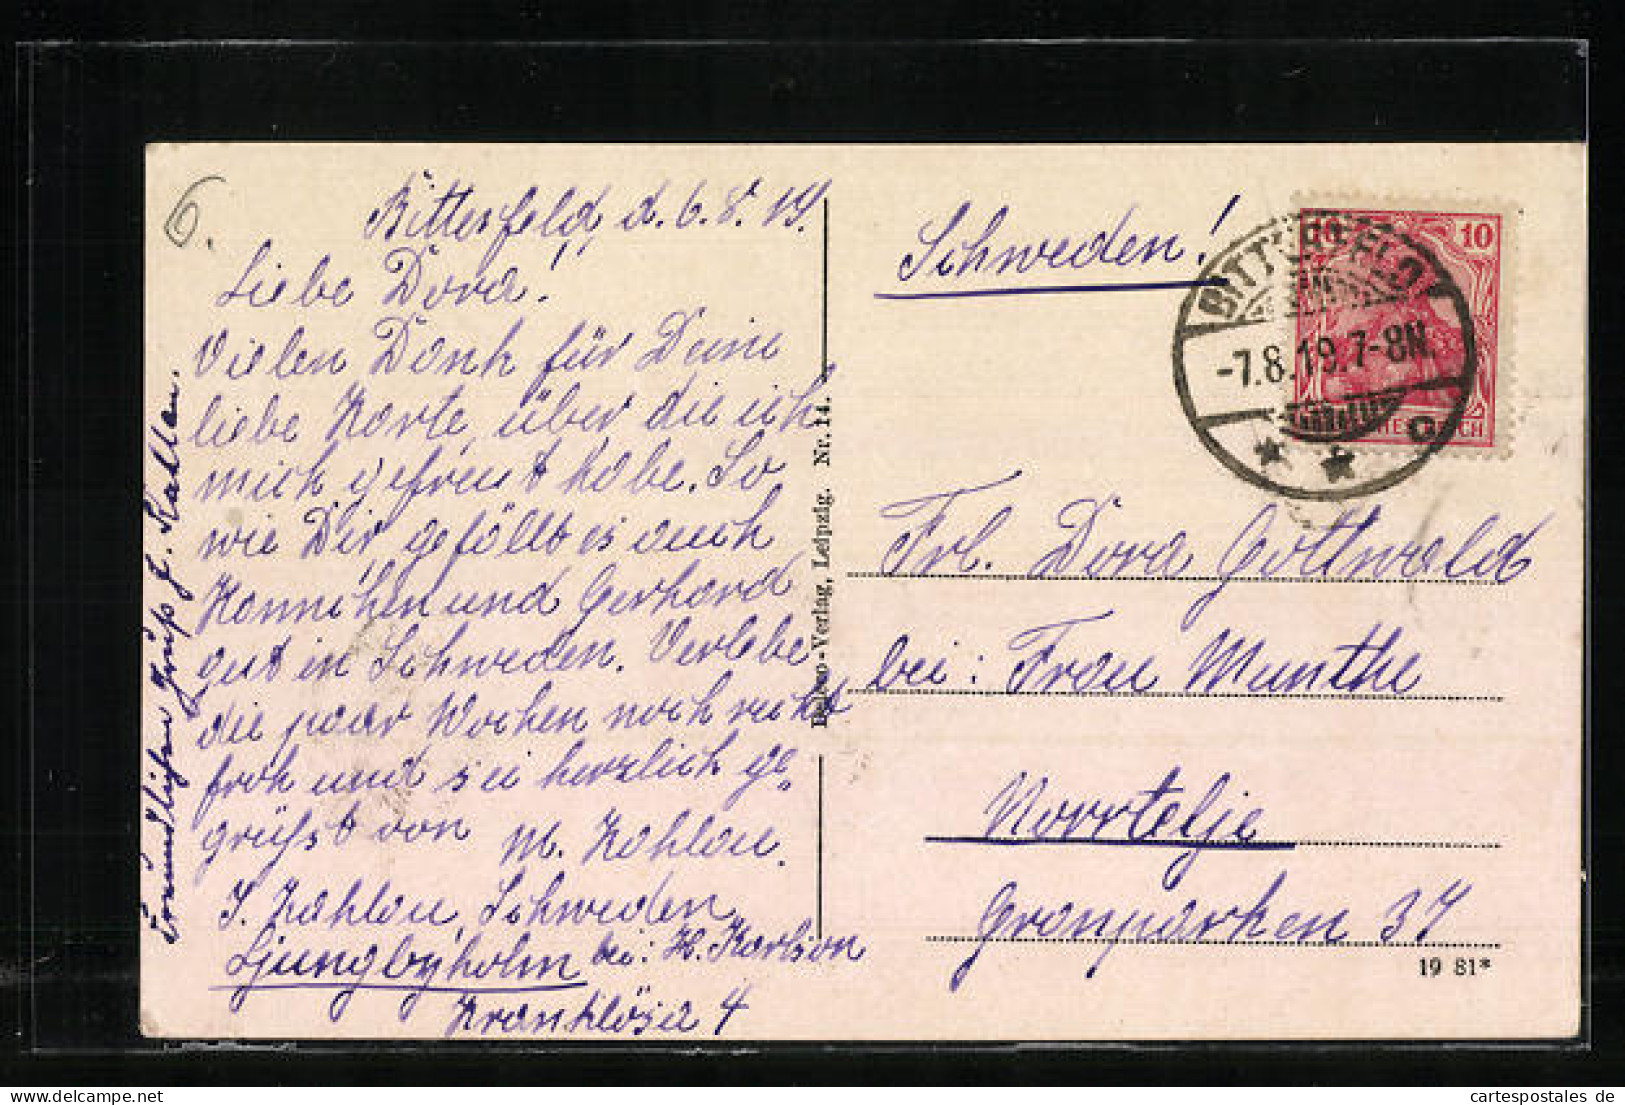 6.
Bitterfeld, d. 6.8.19.
Liebe Dora!
Vielen Dank für Deine
liebe Karte, über die ich
mich gefreut habe. So
wie Dir, gefällt es auch
Hannchen und Gerhard
gut in Schweden. Verlebe
die paar Wochen noch recht
froh und sei herzlich ge-
grüßt von
M. Kahlau.
J. Kahlau, Schweden
Ljungbyholm bei: H. Karlson
4
Freundlichen Gruß
Schweden!
BITTERFELD
-7.8.19.7-8N.
* * c
10 10
DEUTSCHES REICH
Frl. Dora Gottwald
bei: Frau Munthe
Norrtelje
Granparken 37
19 81*
-Verlag, Leipzig. Nr. 14.
cartespostales de